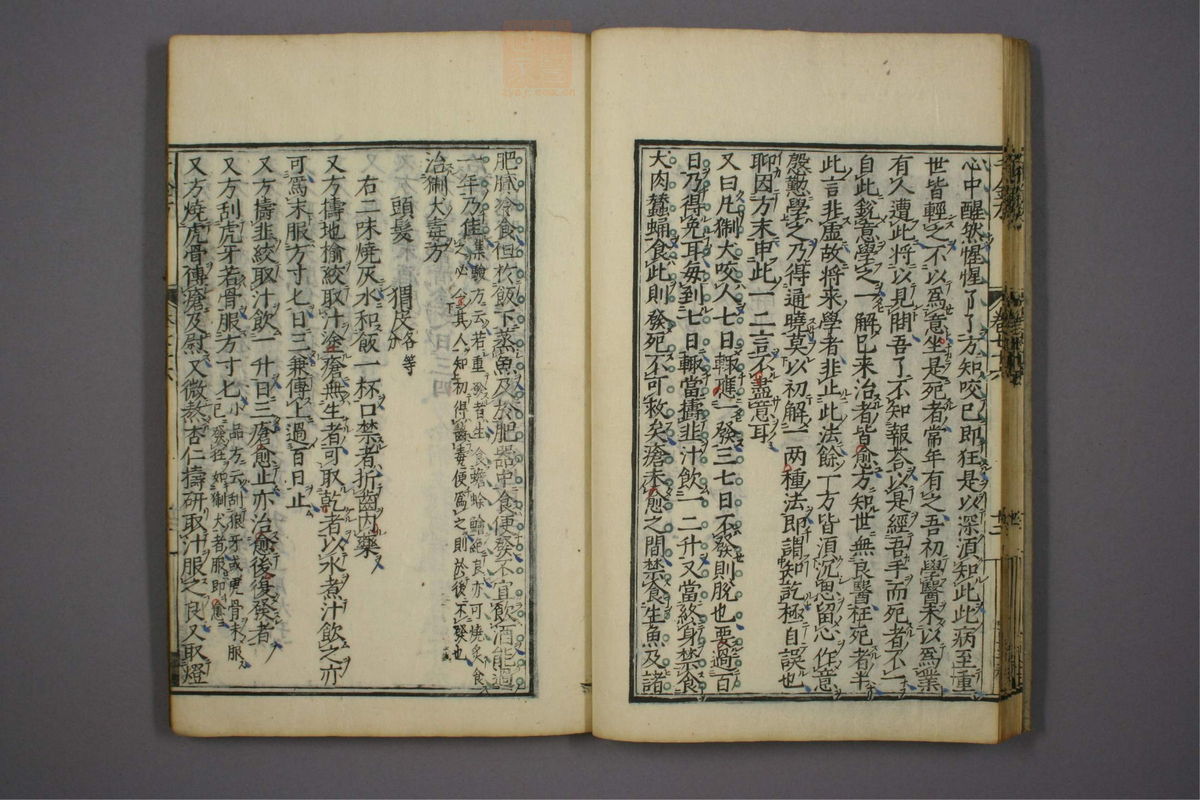 心中醒然惺惺了了方知咬已即狂是以深須知此此病至重
世皆輕之不以為意坐是死者常年有之吾初學醫未以為業
有人遭此將以見問吾了不知報荅以是經吾手而死者不一
自此銳意學之一解已来治者皆愈方知世無良醫枉死者半
此言非虛故將来學者非止此法餘一方皆須沉思留心作意
慇懃學之乃得通曉莫以初解一两種法即謂知訖極自誤也
聊因方末申此一二言不盡意耳
又曰凡猘犬咬人七日輒應一發三七日不發則脫也要過百
日乃得免耳每到七日輒當擣韭汁飲一二升又當終身禁食
犬肉蠶蛹食此則發死不可救矣瘡未愈之間禁食生魚及諸
肥膩冷食但於飯下蒸魚及於肥器中食便發不宜飲酒能過
一年乃佳集驗方云若重發者生食蟾蜍鱠絕良亦可燒炙食
之必不令其人知初得齧毒便為之則於後不發也
治猘犬毒方
頭髮 猬皮各等分
右二味燒灰水和飯一杯口禁者折齒内藥
又方擣地榆絞取汁塗瘡無生者可取乾者以水煮汁飲之亦
可為末服方寸匕日三兼傅上過百日止
又方擣韭絞取汁飲一升日三瘡愈止亦治愈後復發者
又方刮虎牙若骨服方寸匕小品方云刮狼牙或虎骨末服
已發狂如猘犬者服即愈
又方燒虎骨傅瘡及慰又微熬杏仁擣研取汁服之良又取燈